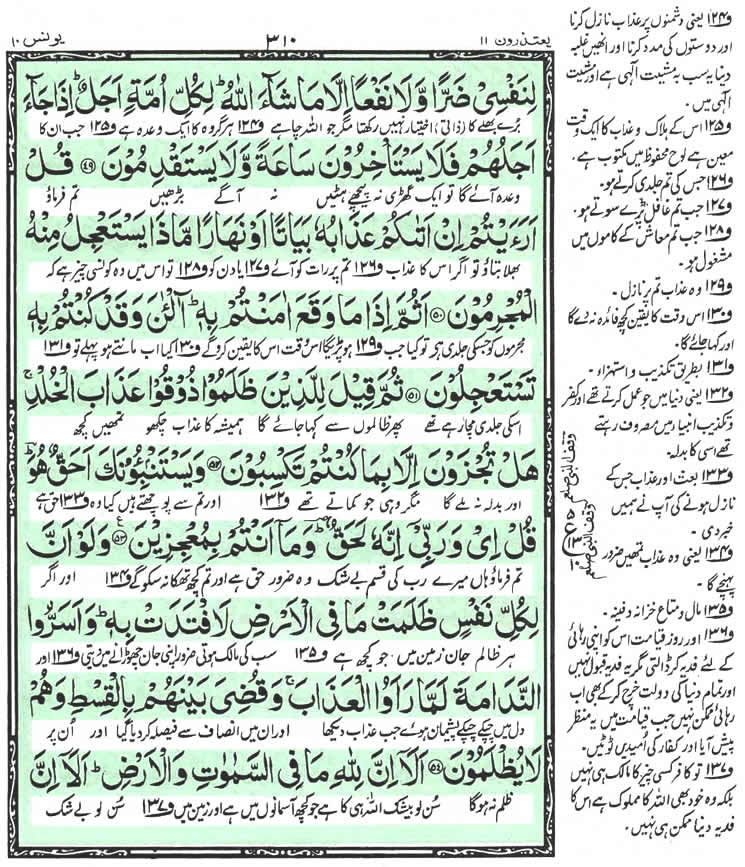 یعتذرون ۱۱
۳۱۰
یونس ۱۰
لِنَفْسِیْ ضَرًّا وَّلَا نَفْعًا اِلَّا مَا شَآءَ اللّٰهُ ؕ لِكُلِّ اُمَّةٍ اَجَلٌ ؕ اِذَا جَآءَ
برے بھلے کا (ذاتی) اختیار نہیں رکھتا مگر جو اللہ چاہے و۱۲۴ ہر گروہ کا ایک وعدہ ہے و۱۲۵ جب ان کا
اَجَلُهُمْ فَلَا یَسْتَاْخِرُوْنَ سَاعَةً وَّلَا یَسْتَقْدِمُوْنَ ﴿۴۹﴾ قُلْ
وعدہ آئے گا تو ایک گھڑی نہ پیچھے ہٹیں نہ آگے بڑھیں تم فرماؤ
اَرَءَیْتُمْ اِنْ اَتٰىكُمْ عَذَابُهٗ بَیَاتًا اَوْ نَهَارًا مَّاذَا یَسْتَعْجِلُ مِنْهُ
بھلا بتاؤ تو اگر اس کا عذاب و۱۲۶ تم پر رات کو آئے و۱۲۷ یا دن کو و۱۲۸ تو اس میں وہ کونسی چیز ہے کہ
الْمُجْرِمُوْنَ ﴿۵۰﴾ اَثُمَّ اِذَا مَا وَقَعَ اٰمَنْتُمْ بِهٖ ؕ آٰلْـٰٔنَ وَقَدْ كُنْتُمْ بِهٖ
مجرموں کو جسکی جلدی ہے تو کیا جب و۱۲۹ ہو پڑیگا اس وقت اس کا یقین کرو گے و۱۳۰ کیا اب مانتے ہو پہلے تو و۱۳۱
تَسْتَعْجِلُوْنَ ﴿۵۱﴾ ثُمَّ قِیْلَ لِلَّذِیْنَ ظَلَمُوْا ذُوْقُوْا عَذَابَ الْخُلْدِ ۚ
اسکی جلدی مچا رہے تھے پھر ظالموں سے کہا جائے گا ہمیشہ کا عذاب چکھو تمھیں کچھ
هَلْ تُجْزَوْنَ اِلَّا بِمَا كُنْتُمْ تَكْسِبُوْنَ ﴿۵۲﴾ وَیَسْتَنْۢبِـُٔوْنَكَ اَحَقٌّ هُوَ ؔؕ
اور بدلہ نہ ملے گا مگر وہی جو کماتے تھے و۱۳۲ اور تم سے پوچھتے ہیں کیا وہ و۱۳۳ حق ہے
قُلْ اِیْ وَرَبِّیْۤ اِنَّهٗ لَحَقٌّ ؔؕ وَمَاۤ اَنْتُمْ بِمُعْجِزِیْنَ ﴿۵۳﴾ وَلَوْ اَنَّ
تم فرماؤ ہاں میرے رب کی قسم بے شک وہ ضرور حق ہے اور تم کچھ تھکا نہ سکو گے و۱۳۴ اور اگر
لِكُلِّ نَفْسٍ ظَلَمَتْ مَا فِی الْاَرْضِ لَافْتَدَتْ بِهٖ ؕ وَاَسَرُّوا
ہر ظالم جان زمین میں جو کچھ ہے و۱۳۵ سب کی مالک ہوتی ضرور اپنی جان چھوڑانے میں دیتی و۱۳۶ اور
النَّدَامَةَ لَمَّا رَاَوُا الْعَذَابَ ۚ وَقُضِیَ بَیْنَهُمْ بِالْقِسْطِ وَهُمْ
دل میں چپکے چپکے پشیمان ہوئے جب عذاب دیکھا اور ان میں انصاف سے فیصلہ کر دیا گیا اور اُن پر
لَا یُظْلَمُوْنَ ﴿۵۴﴾ اَلَاۤ اِنَّ لِلّٰهِ مَا فِی السَّمٰوٰتِ وَالْاَرْضِ ؕ اَلَاۤ اِنَّ
ظلم نہ ہوگا سُن لو بیشک اللہ ہی کا ہے جو کچھ آسمانوں میں ہے اور زمین میں و۱۳۷ سُن لو بے شک
و۱۲۴ یعنی دشمنوں پر عذاب نازل کرنا
اور دوستوں کی مدد کرنا اور انھیں غلبہ
دینا یہ سب بہ مشیت الٰہی ہے اور مشیت
الٰہی میں۔
و۱۲۵ اس کے ہلاک و عذاب کا ایک وقت
معین ہے لوح محفوظ میں مکتوب ہے۔
و۱۲۶ جس کی تم جلدی کرتے ہو۔
و۱۲۷ جب تم غافل پڑے سوتے ہو۔
و۱۲۸ جب تم معاش کے کاموں میں
مشغول ہو۔
و۱۲۹ وہ عذاب تم پر نازل۔
و۱۳۰ اس وقت کا یقین کچھ فائدہ نہ دے گا
اور کہا جائے گا۔
و۱۳۱ بطریق تکذیب و استہزاء۔
و۱۳۲ یعنی دنیا میں جو عمل کرتے تھے اور کفر
و تکذیب انبیا میں مصروف رہتے
تھے اسی کا بدلہ۔
و۱۳۳ بعث اور عذاب جس کے
نازل ہونے کی آپ نے ہمیں
خبر دی۔
و۱۳۴ یعنی وہ عذاب تمھیں ضرور
پہنچے گا۔
و۱۳۵ مال و متاع خزانہ و دفینہ۔
و۱۳۶ اور روز قیامت اس کو اپنی رہائی
کے لئے فدیہ کر ڈالتی مگر یہ فدیہ قبول نہیں
اور تمام دنیا کی دولت خرچ کر کے بھی اب
رہائی ممکن نہیں جب قیامت میں یہ منظر
پیش آیا اور کفار کی اُمیدیں ٹوٹیں۔
و۱۳۷ تو کافر کسی چیز کا مالک ہی نہیں
بلکہ وہ خود بھی اللہ کا مملوک ہے اس کا
فدیہ دینا ممکن ہی نہیں۔